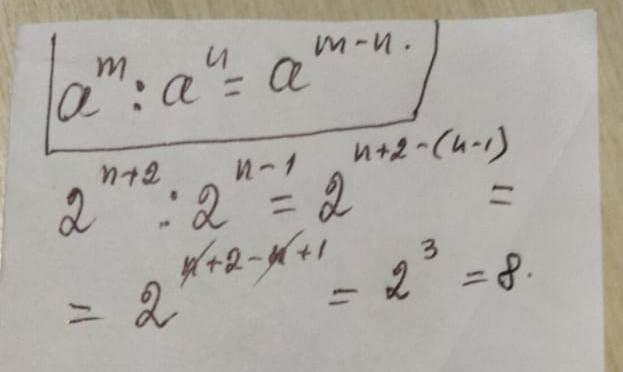 a^m : a^n = a^{m-n}.
2^{n+2} : 2^{n-1} = 2^{n+2-(n-1)} =
= 2^{n+2-n+1} = 2^3 = 8.